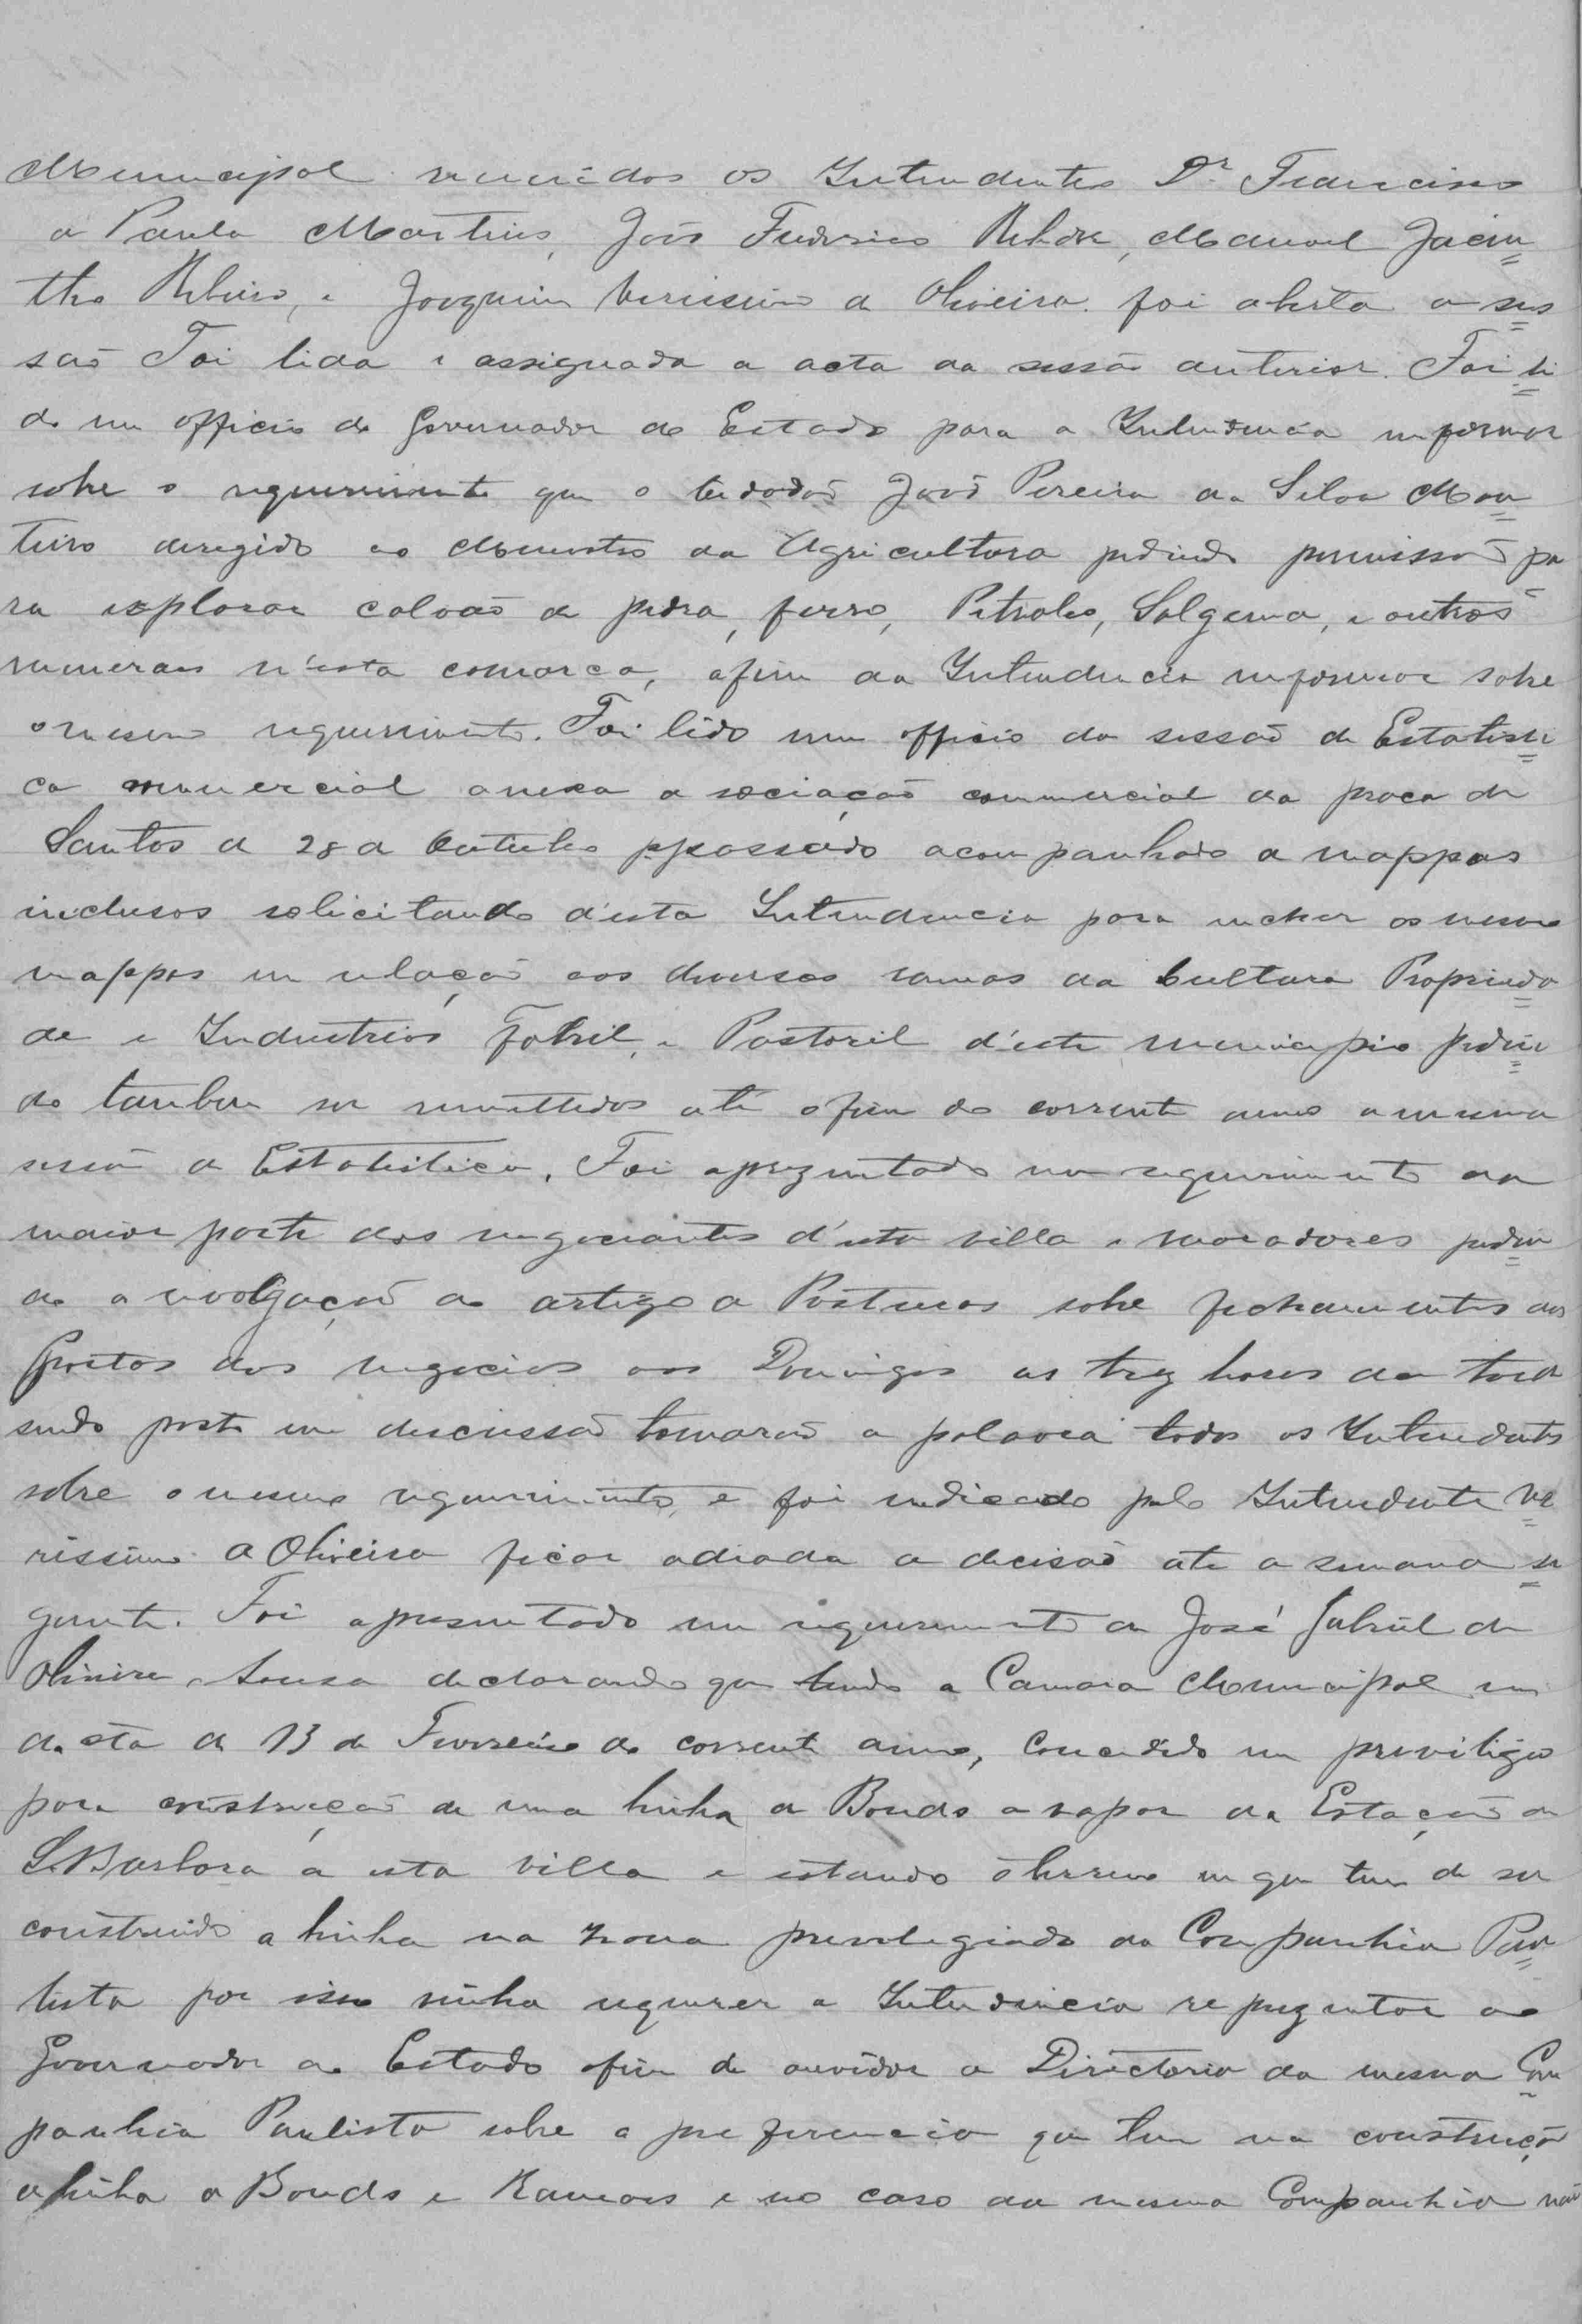 Municipal reunidos os Intendentes Dr. Francisco
de Paula Martins, João Frederico Rehder, Manoel Jacin=
tho Ribeiro, e Joaquim Verissimo de Oliveira foi aberta a ses=
são Foi lida e assignada a acta da sessão anterior. Foi li=
do um officio do Governador do Estado para a Intendencia informar
sobre o requerimento que o cidadão João Pereira da Silva Mon=
teiro deregido ao Menistro da Agricultura pedindo permissão pa
ra explorar calvão de pedra, ferro, Petroleo, Salgema, e outros
mineraes n'esta comarca, afim da Intendencia informar sobre
o mesmo requerimento. Foi lido um officio da sessão de Estatisti=
ca commercial anexa a sociação commercial da praca de
Santos de 28 de Outubro p.passado acompanhado de mappas
inclusos solicitando d'esta Intendencia para encher os mesmos
mappas em relação aos diversos ramos da Cultura Proprieda=
de e Industrias Fabril, e Pastoril d'este municipio pedin=
do tambem ser remettidos até o fim do corrente anno a mesma
sessão de Estatistica. Foi aprezentado um requerimento da
maior parte dos negociantes d'esta villa e moradores pedin=
do a revolgação do artigo de Posturas sobre fechamentos das
portas dos negocios aos Domingos as trez horas da tarde
sendo posto em discussão tomarão a palavra todos os Intendentes
sobre o mesmo requerimento, e foi indicado pelo Intendente Ve=
rissimo de Oliveira ficar adiada a decisão ate a semana se=
guinte. Foi apresentado um requerimento de José Gabriel de
Oliveira e Sousa declarando que tendo a Camara Municipal em
data de 13 de Fevereiro do corrente anno, Concedido um previligio
para construcção de uma linha de Bonds a vapor da Estação de
S. Barbara á esta villa e estando o terreno em que tem de ser
construido a linha na zona previlegiada da Companhia Pau=
lista por isso vinha requerer a Intendencia reprezentar ao
Governador do Estado afim de ouvidor a Directoria da mesma Com=
panhia Paulista sobre a preferencia que tem na construção
da linha de Bonds e Ramaes e no caso da mesma Companhia não